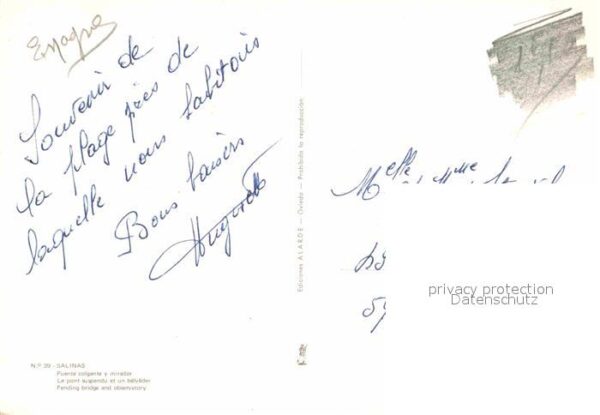 Espagne
Souvenir de
la plage près de
laquelle nous habitons
Bons baisers
Huguette
Ediciones ALARDE - Oviedo - Prohibida la reproducción
Melle
59
privacy protection
Datenschutz
N.º 39 - SALINAS
Puente colgante y mirador
Le pont suspendu et un bélvéder
Pending bridge and observatory